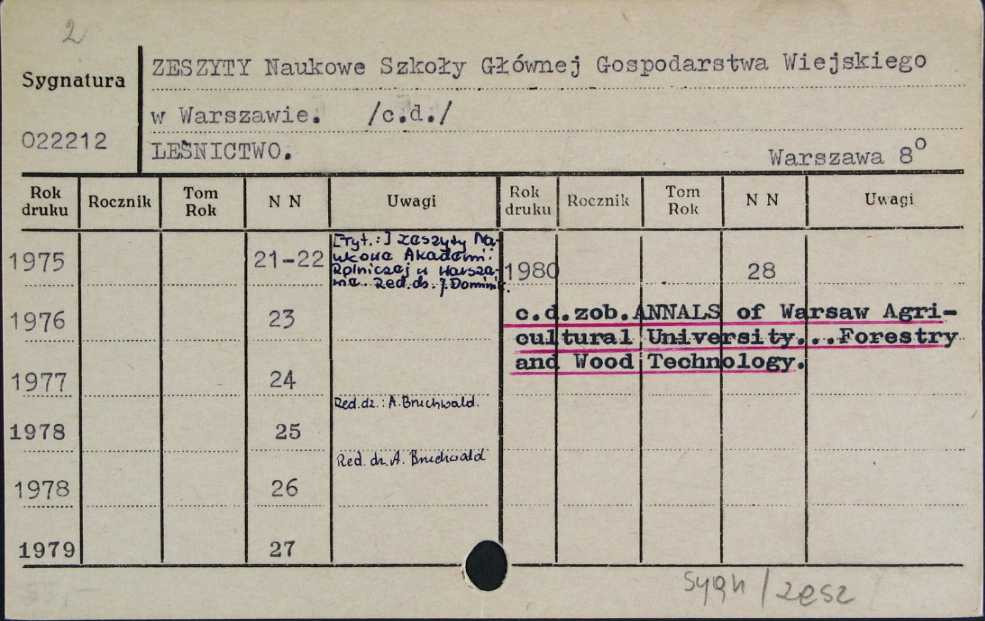 2
Sygnatura
022212
ZESZYTY Naukowe Szkoły Głównej Gospodarstwa Wiejskiego
w Warszawie. /c.d./
LEŚNICTWO.
Warszawa 8°
Rok druku Rocznik Tom Rok N N Uwagi Rok druku Rocznik Tom Rok N N Uwagi
1975 21-22
[Tyt.:] Zeszyty Na-
ukowe Akademi
Rolniczej w Warsza-
wie. Red.dz. J. Dominik.
1980 28
1976 23
c.d.zob.ANNALS of Warsaw Agri-
cultural University...Forestry
and Wood Technology.
1977 24
Red.dz.: A.Bruchwald.
1978 25
Red. dz. A. Bruchwald
1978 26
1979 27
sygn / zesz